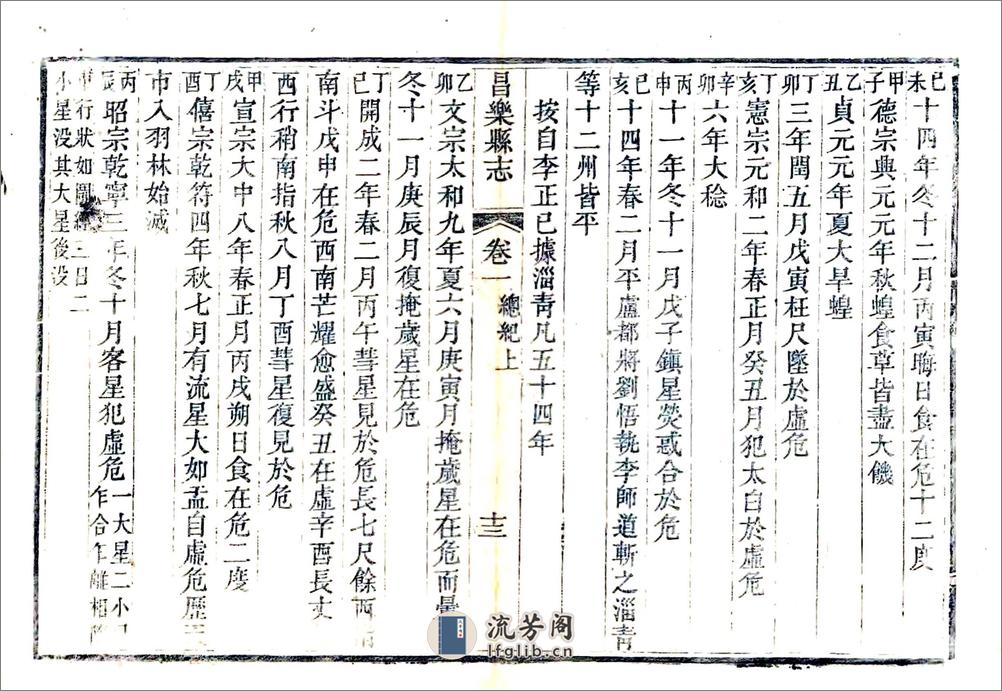 己未十四年冬十二月丙寅晦日食在危十二度
甲子德宗興元元年秋蝗食草皆盡大饑
乙丑貞元元年夏大旱蝗
丁卯三年閏五月戊寅枉尺墜於虛危
丁亥憲宗元和二年春正月癸丑月犯太白於虛危
辛卯六年大稔
丙申十一年冬十一月戊子鎮星熒惑合於危
己亥十四年春二月平盧都將劉悟執李師道斬之淄青
等十二州皆平
按自李正已據淄靑凡五十四年
昌樂縣志 卷一 總紀上 十三
乙卯文宗太和九年夏六月庚寅月掩歲星在危而暈
冬十一月庚辰月復掩歲星在危
丁巳開成二年春二月丙午彗星見於危長七尺餘西指
南斗戊申在危西南芒耀愈盛癸丑在虛辛酉長丈
西行稍南指秋八月丁酉彗星復見於危
甲戌宣宗大中八年春正月丙戌朔日食在危二度
丁酉僖宗乾符四年秋七月有流星大如盂自虛危歷天
市入羽林始滅
丙辰昭宗乾寧三年冬十月客星犯虛危一大星二小星乍合乍離相隨
行狀如鬭經三日二
小星没其大星後没
流芳阁
lfglib.cn